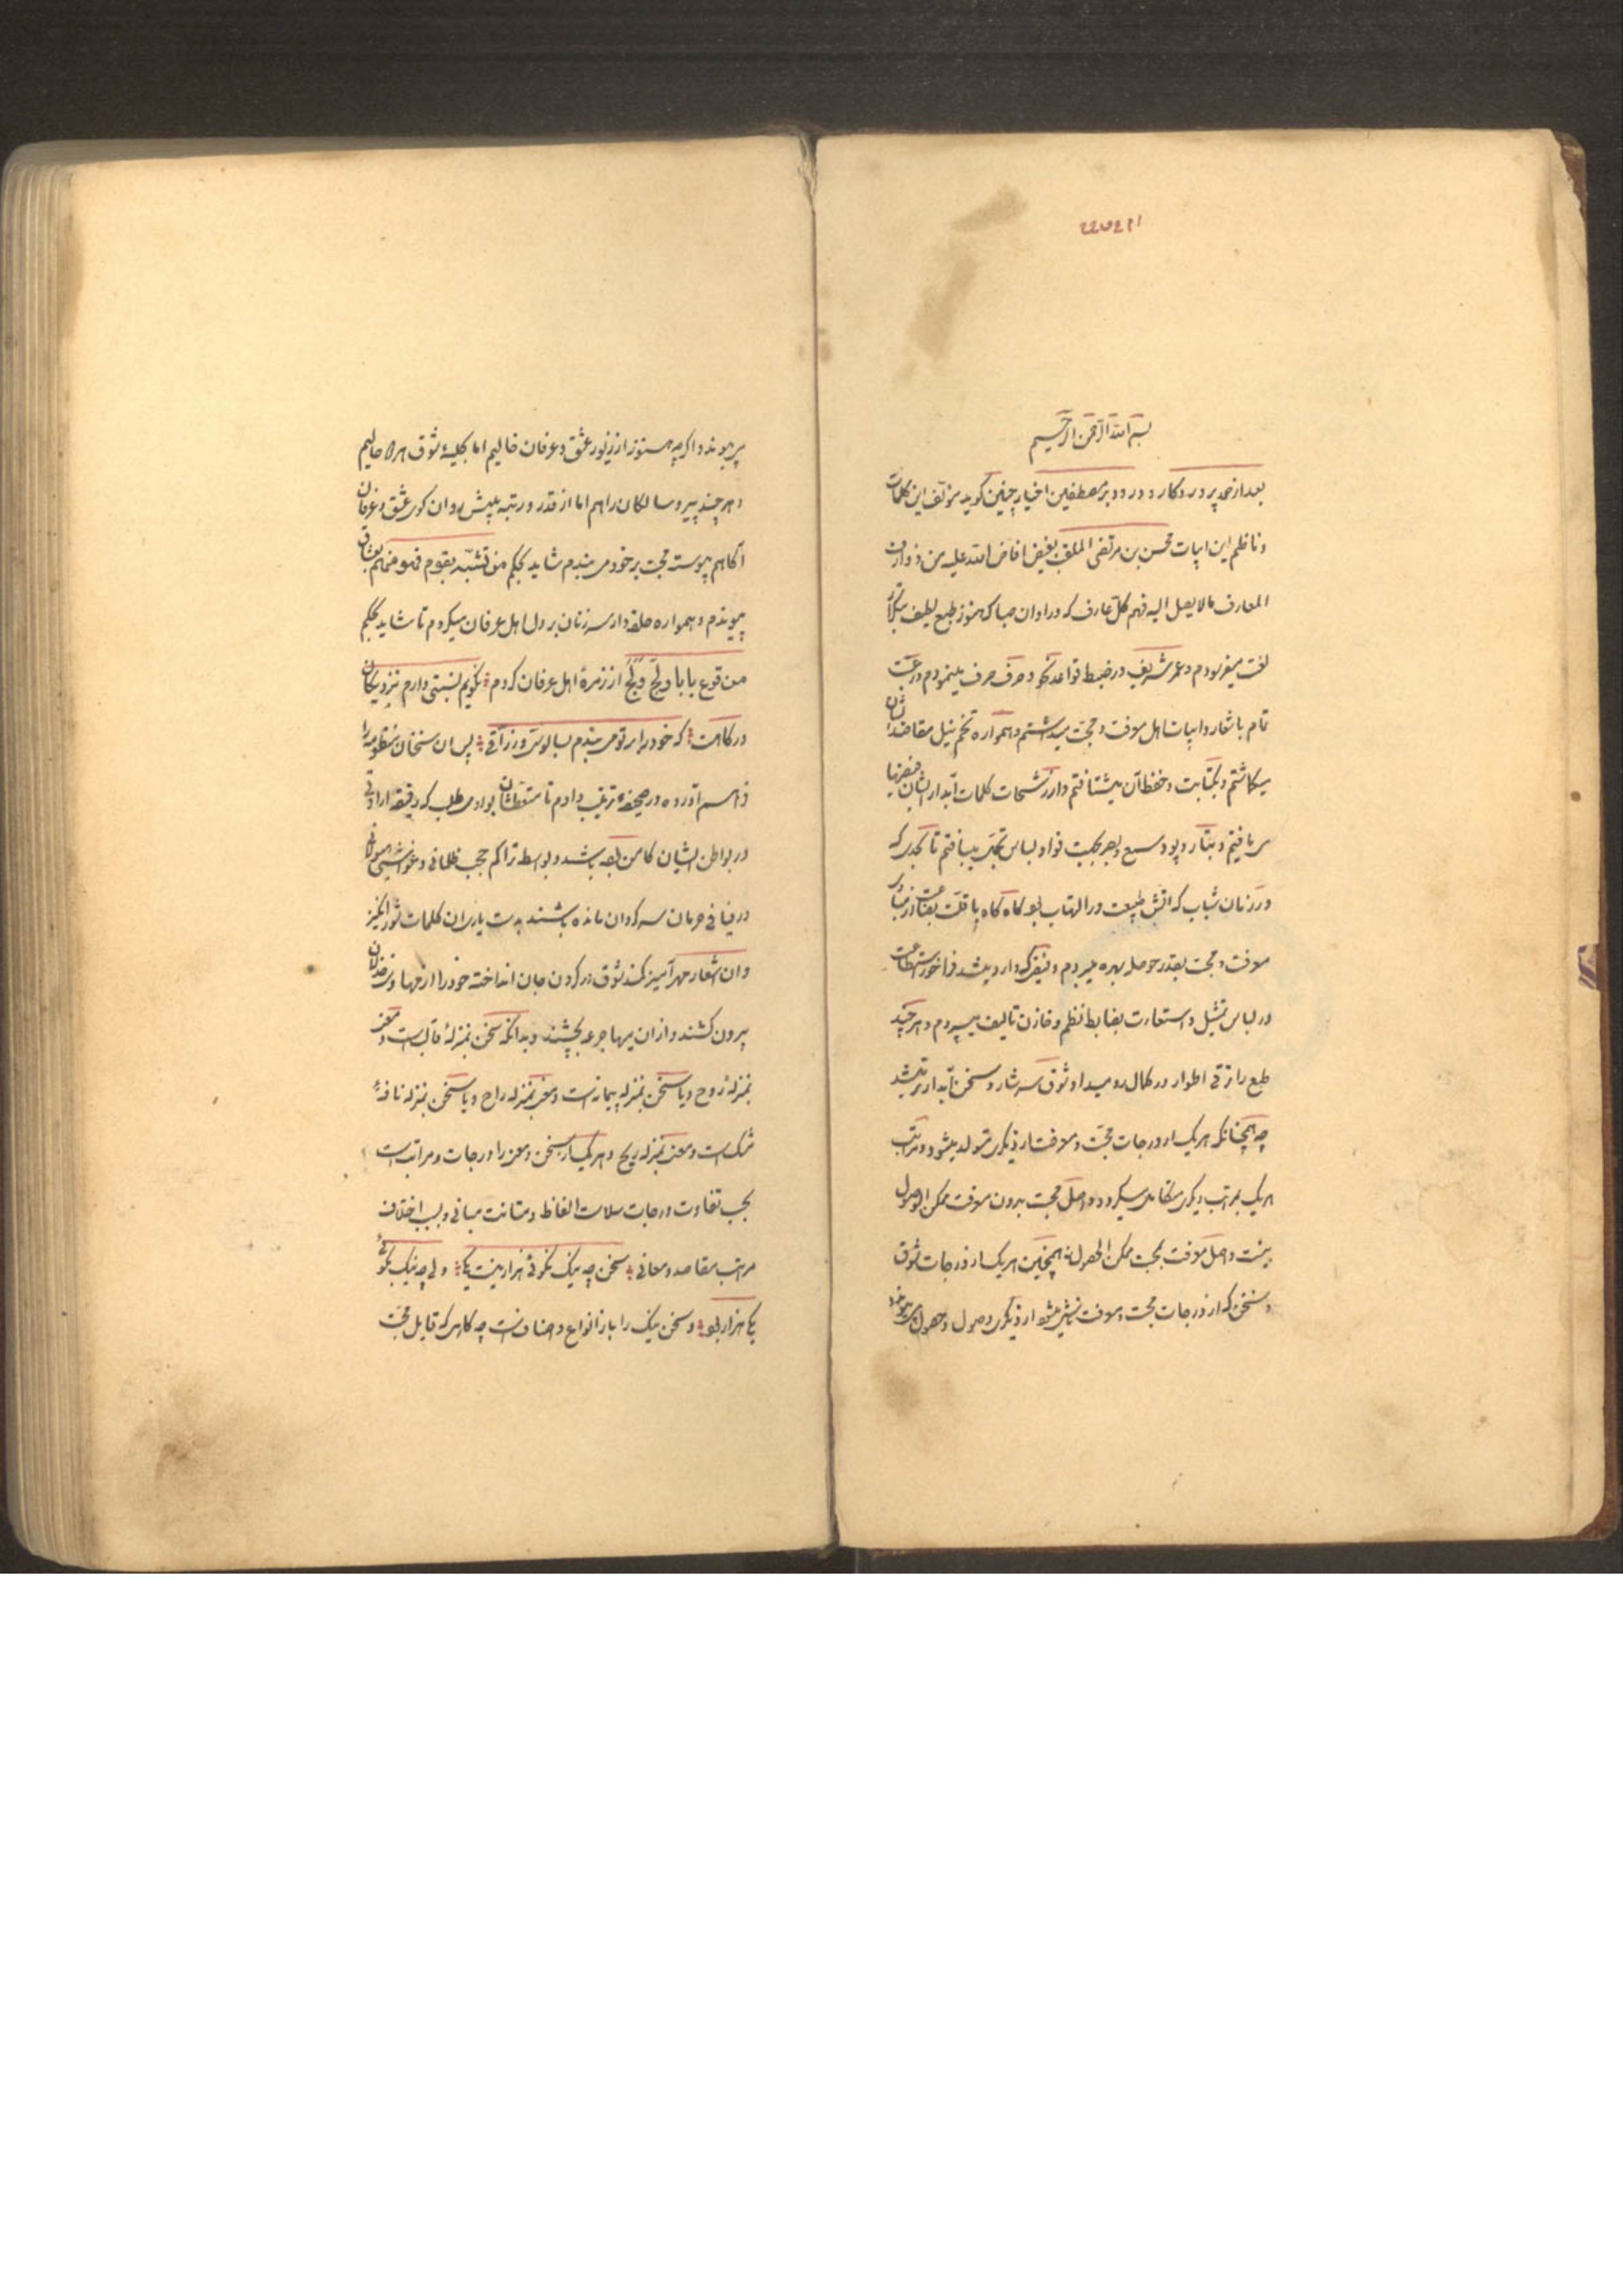 بسم الله الرحمن الرحیم
بعد از حمد پروردگار و درود بر مصطفین اخیار چنین گوید مؤلف این کلمات
و ناظم این ابیات محسن بن مرتضی الملقب بفیض افاض الله علیه من ذوارف
المعارف مالا یصل الیه فهم کل عارف که در اوان صبا که هنوز طبع لطیف
لغت میفرمودم و عمر شریف در ضبط قواعد نحو و صرف صرف مینمودم رغبت
تام باشعار و ابیات اهل معرفت و محبت میداشتم و همواره تخم نیل مقاصدشان
میکاشتم و بکتابت و حفظ آن میشتافتم و از رشحات کلمات آبدار ایشان فیضها
می یافتم و بتار و پود سمع و بصر بجهت فواد لباس میبافتم تا بحدی که
در زمان شباب که آتش طبیعت در التهاب بود گاه گاه با قلت بضاعت از
معرفت و محبت بقدر حوصله بهره میبردم و فیضی که وارد میشد فراخور استطاعت
در لباس تمثیل و استعارت بضابط نظم و خازن تالیف میسپردم و هر چند
طبع را ترقی اطوار در کمال رو میداد شوق سرشار و سخن آبدارتر میشد
چه همچنانکه هر یک از درجات محبت و معرفت از دیگری متولد میشود و مراتب
هر یک بمراتب دیگری متکامل میگردد و اصل محبت بدون معرفت ممکن الوصول
نیست و اصل معرفت بمحبت ممکن الحصول نه همچنین هر یک از درجات شوق
و سخن که از درجات محبت و معرفت ناشی میشود از دیگری وصول و حصول می‌پذیرد
می پیوندد و اگرچه هنوز از نور عشق و عرفان خالیم اما بحلیهٔ شوق هر دو حالیم
و هر چند پیرو سالکان راهم اما از قدر و رتبه پیش روان کوی عشق و عرفان
آگاهم پیوسته محبت بر خود می بندم شاید بحکم من تشبه بقوم فهو منهم بعشاق
پیوندم و همواره حلقه وار سر زنان بر دل اهل عرفان میگردم تا شاید بحکم
من قرع بابا ولج ولج از زمرهٔ اهل عرفان گردم نگویم نسبتی دارم بنزدیکان
درگاهت که خود را بر تو می بندم بسالوسی و زراقی پس آن سخنان منظومه را
فراهم آورده در صحیفهٔ ترتیب دادم تا متعطشان بوادی طلب که دقیقه ارادتی
در بواطن ایشان کامن بوده باشد و بواسطه تراکم حجب ظلمانی و غواشی هیولانی
در فیافی حرمان سرگردان مانده باشند بدستیاری آن کلمات شورانگیز
و آن اشعار مهرآمیز کمند شوق در گردن جان انداخته خود را از جهان
بیرون کشند و از آن میها جرعه بچشند و بدانکه سخن بمنزلهٔ قالب است و معنی
بمنزلهٔ روح و یا سخن بمنزله پیمانه است و معنی بمنزله راح و یا سخن بمنزله نافهٔ
مشک است و معنی بمنزله ریح و هر یک از سخن و معنی را درجات و مراتب است
بحسب تفاوت درجات سلاست الفاظ و متانت مبانی و بسبب اختلاف
مراتب مقاصد و معانی سخن چه نیک نگوئی هزار نیست یکی ولی چه نیک بگوئی
یکی هزار بود و سخن نیک را باز انواع و اصناف است چه گاهی که قایل محبت